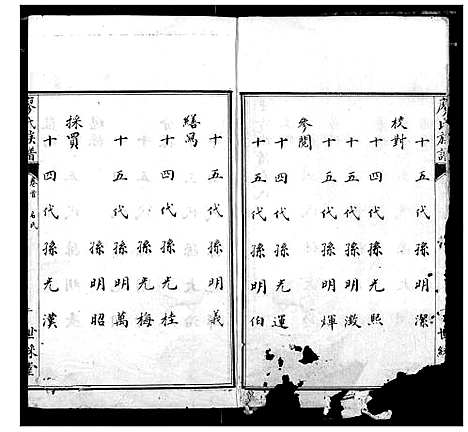 廖氏族譜
十五代孫明潔
校對
十四代孫光熙
十五代孫明澂
十五代孫明煇
參閱
十四代孫光運
十五代孫明伯
十五代孫明義
繕寫
十四代孫光桂
孫光梅
十五代孫明萬
孫明昭
採買
十四代孫光漢
廖氏族譜
卷首
名氏
世綵堂